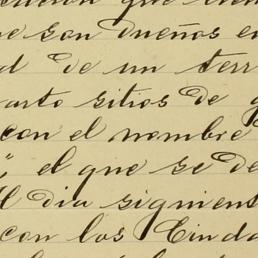 que
e son dueños en
d de un terr
arto sitios de g
con el nombre
", el que se de
l dia siguient
con los Cinda